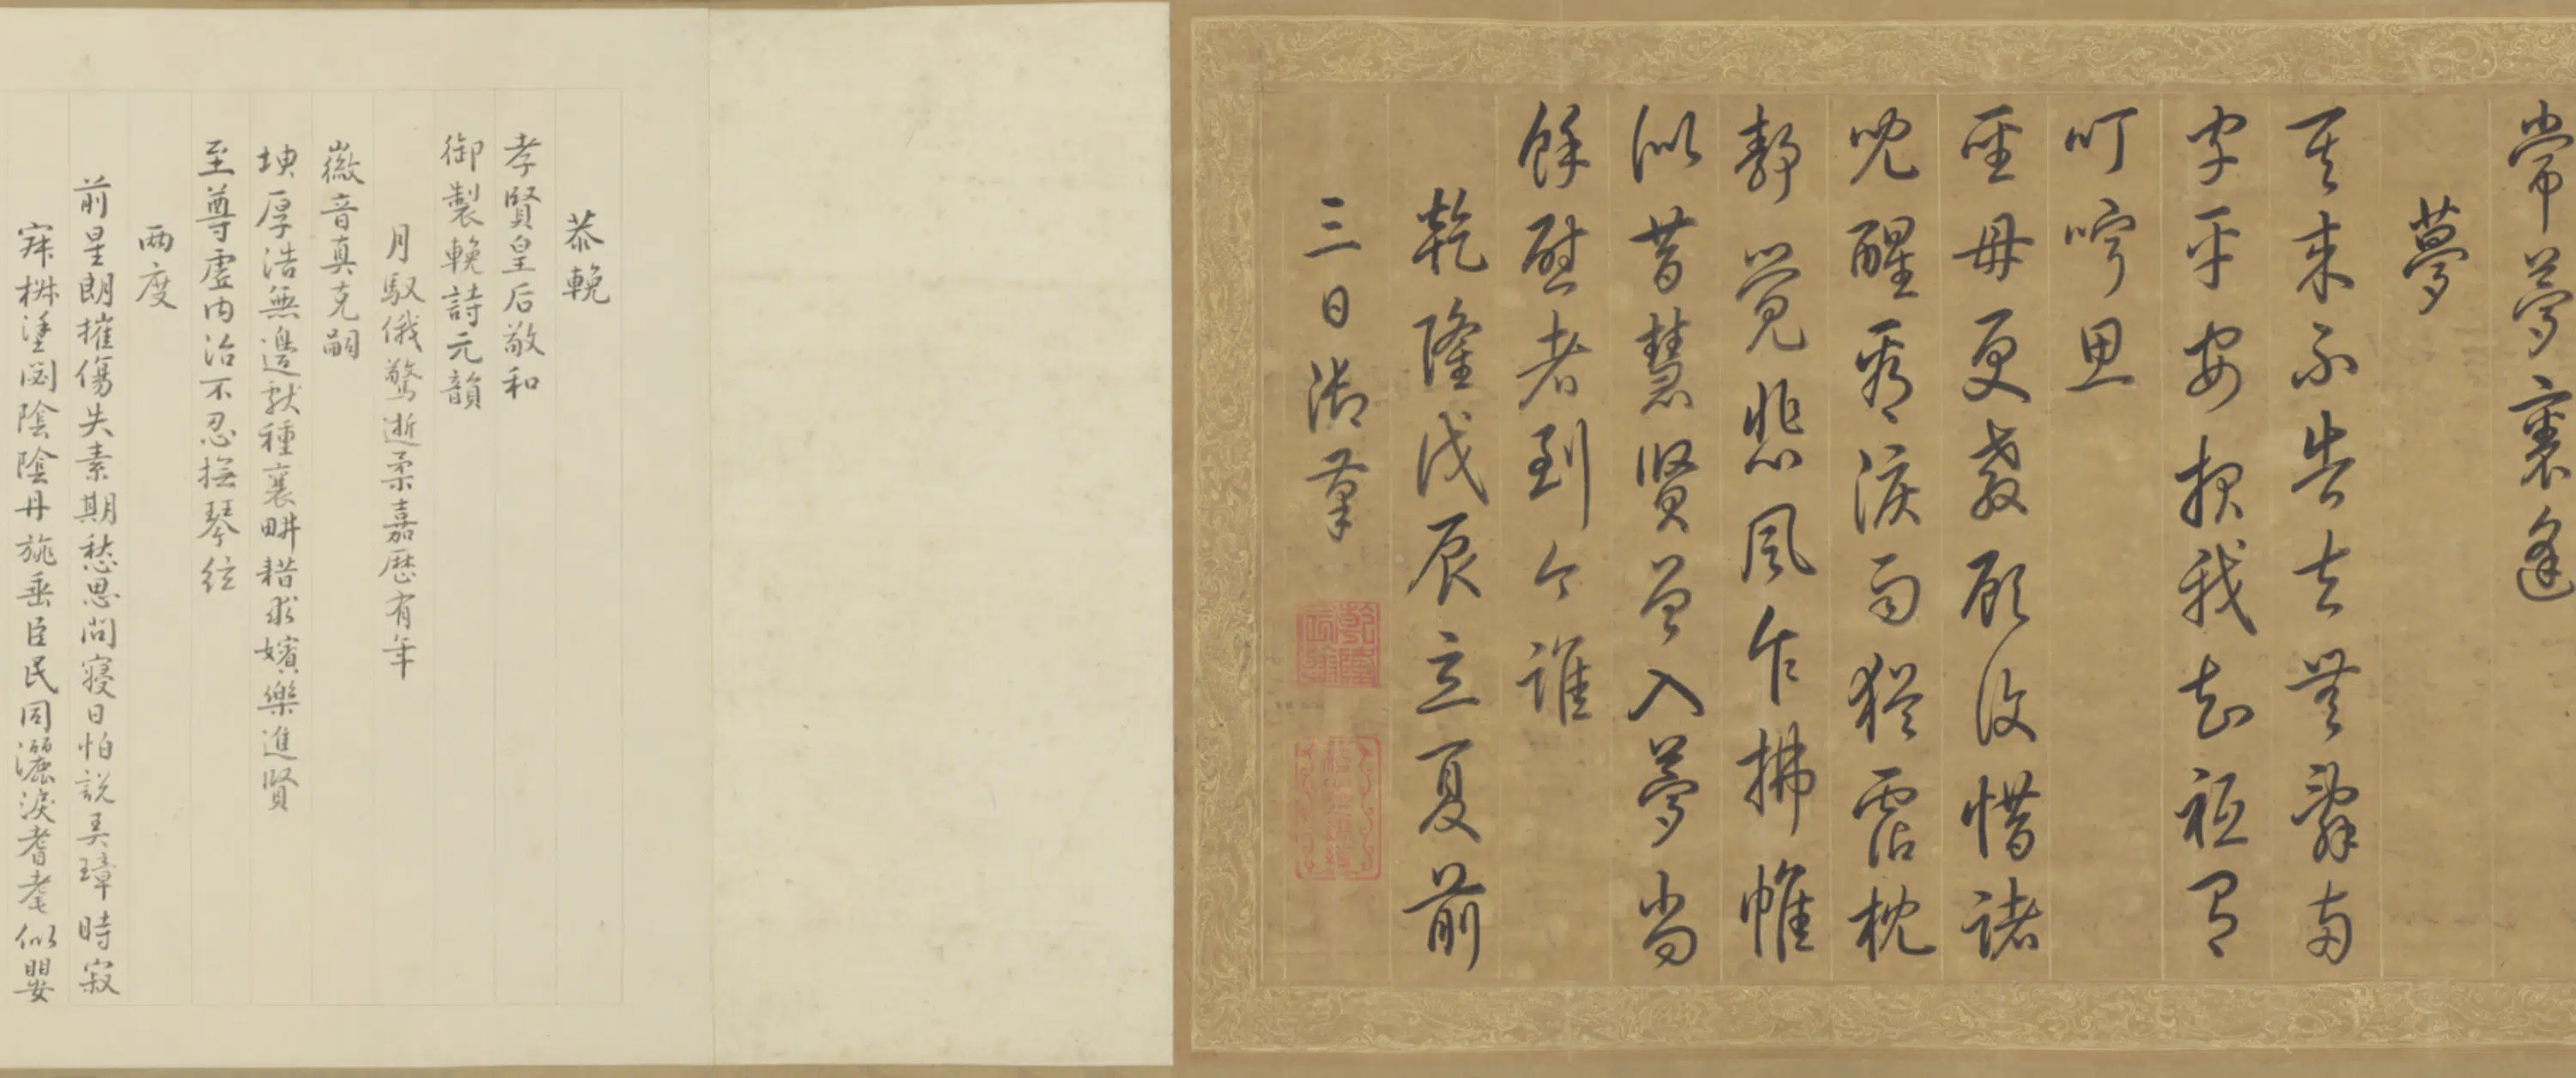 常夢裏逢
夢
其來不告去無辭兩
字平安報我知秪有
叮嚀思
聖母更教顧復惜諸
兒醒看淚雨猶霑枕
靜覺悲風乍拂帷
似昔慧賢曾入夢尚
餘慰者到今誰
乾隆戊辰立夏前
三日御筆
恭輓
孝賢皇后敬和
御製輓詩元韻
月馭俄驚逝柔嘉歷有年
徽音真克嗣
坤厚浩無邊獻種襄畊耤求嬪樂進賢
至尊虛內治不忍撫琴絃
兩度
前星朗摧傷失素期愁思問寢日怕說弄璋時寂
寐椒塗閟陰陰丹旐垂臣民同灑淚耆耄似嬰